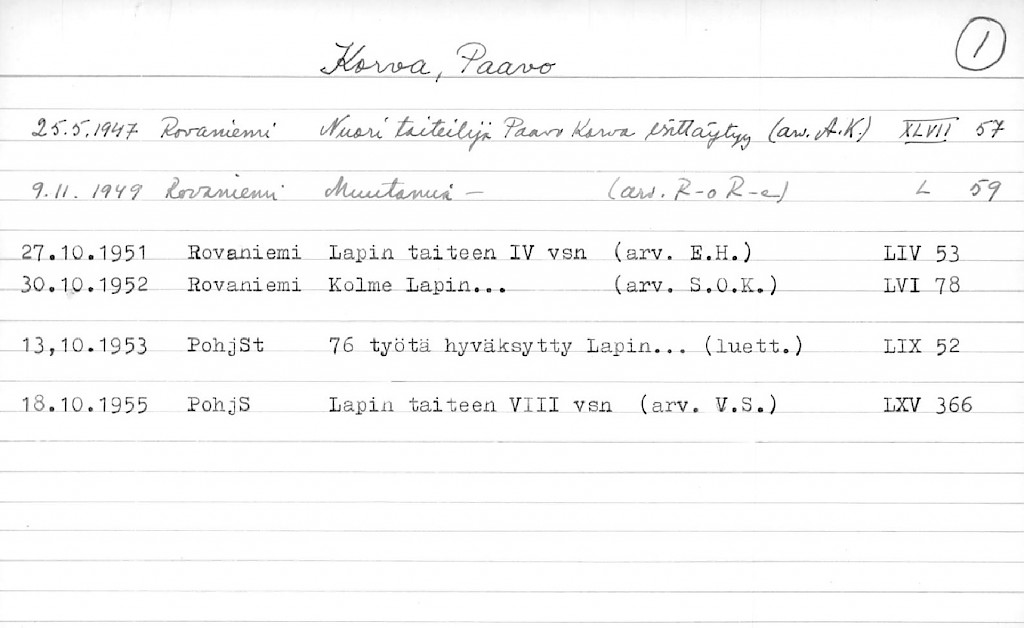 1
Korva, Paavo
25.5.1947 Rovaniemi Nuori taiteilija Paavo Korva esittäytyy (arv. A.K.) XLVII 57
9.11.1949 Rovaniemi Muutamia — (arv. R-o R-e) L 59
27.10.1951 Rovaniemi Lapin taiteen IV vsn (arv. E.H.) LIV 53
30.10.1952 Rovaniemi Kolme Lapin... (arv. S.O.K.) LVI 78
13,10.1953 PohjSt 76 työtä hyväksytty Lapin... (luett.) LIX 52
18.10.1955 PohjS Lapin taiteen VIII vsn (arv. V.S.) LXV 366